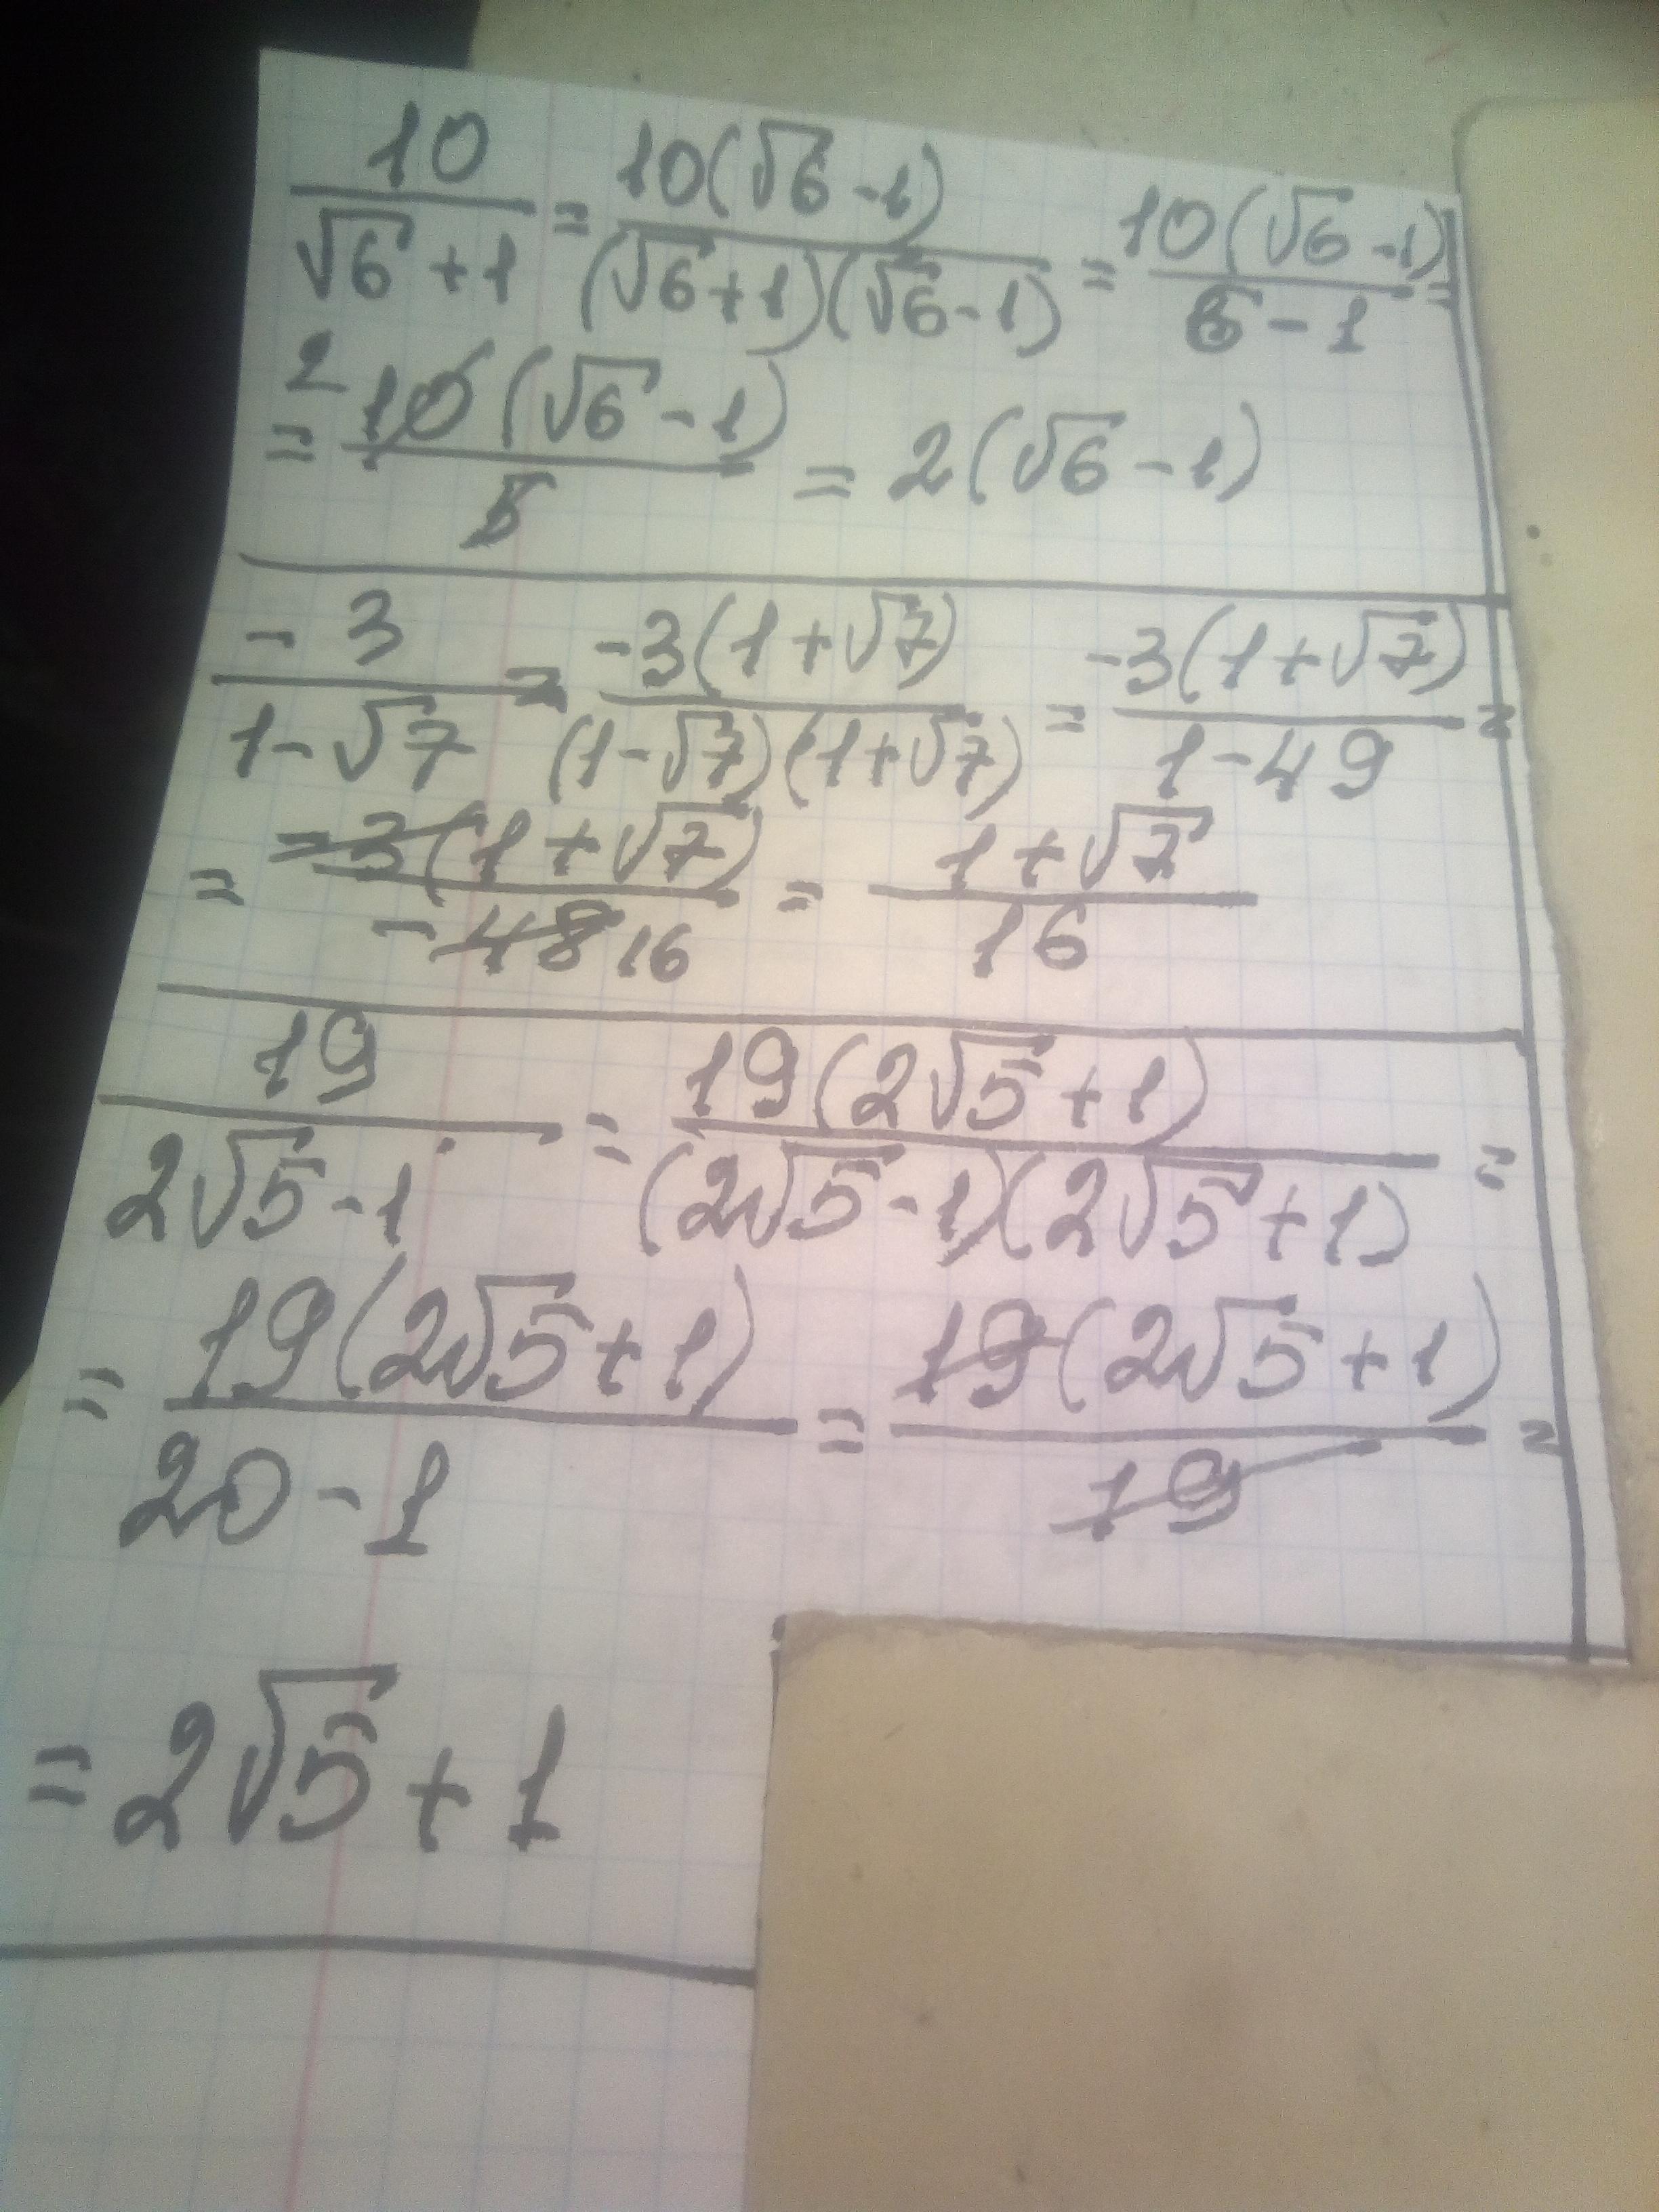 10/(√6+1) = 10(√6-1)/((√6+1)(√6-1)) = 10(√6-1)/(6-1) =
= 2 10(√6-1)/5 = 2(√6-1)
-3/(1-√7) = -3(1+√7)/((1-√7)(1+√7)) = -3(1+√7)/(1-49) =
= -3(1+√7)/(-48 16) = (1+√7)/16
19/(2√5-1) = 19(2√5+1)/((2√5-1)(2√5+1)) =
= 19(2√5+1)/(20-1) = 19(2√5+1)/19 =
= 2√5+1